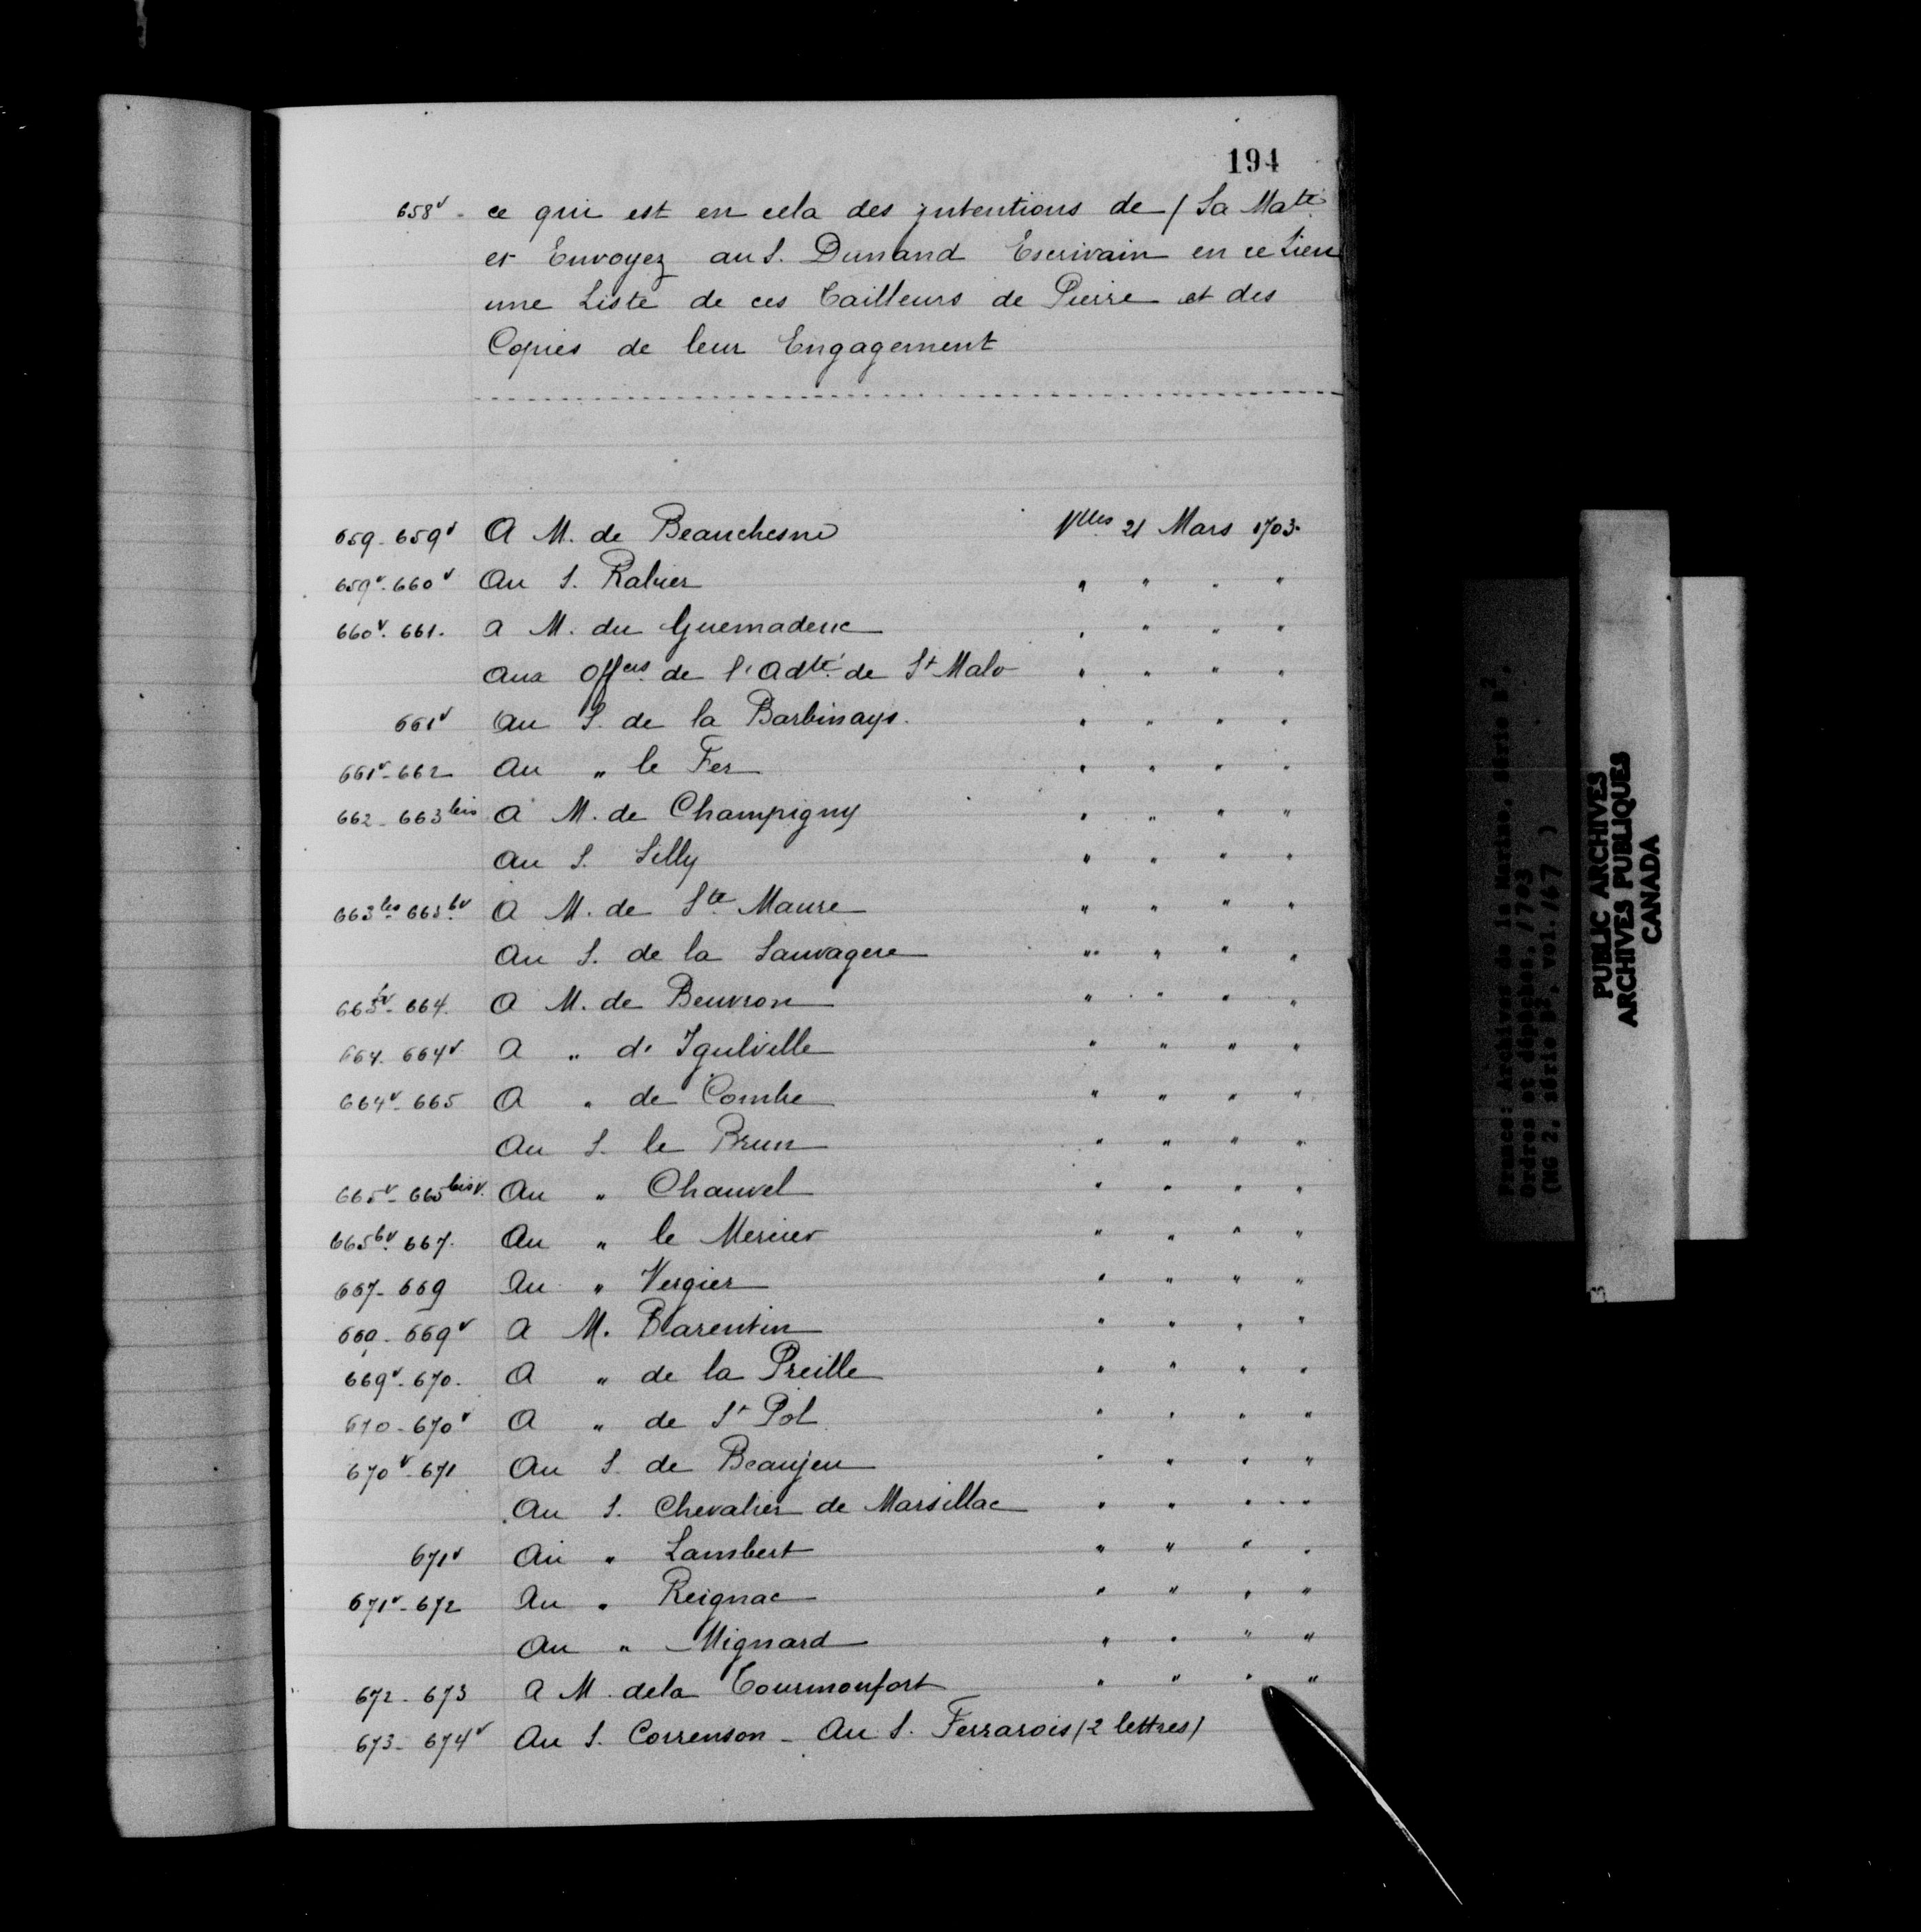 194
658v - ce qui est en cela des jntentions de / Sa Maté
et Envoyez au S. Dunand Escrivain en ce Lieu
une Liste de ces Tailleurs de Pierre et des
Copies de leur Engagement
659 - 659v A M. de Beauchesne Vlles 21 Mars 1703
659v - 660v Au S. Rabier " " " "
660v - 661. a M. du Guemadeuc " " " "
aux Offers de l'adté de St Malo " " " "
661v au S. de la Barbinays. " " " "
661v - 662 au " le Fer " " " "
662 - 663bis A M. de Champigny " " " "
au S. Silly " " " "
663bis 663bv A M. de Ste Maure " " " "
au S. de la Sauvagere " " " "
663bv - 664. A M. de Beuvron " " " "
664 - 664v a " d'Igulville " " " "
664v - 665 A " de Combe " " " "
au S. le Brun " " " "
665v - 665bisv. au " Chauvel " " " "
665bv 667. au " le Mercier " " " "
667 - 669 au " Vergier " " " "
669 - 669v a M. Barentin " " " "
669v - 670. a " de la Preille " " " "
670 - 670v a " de St Pol " " " "
670v - 671 au S. de Beaujeu " " " "
au S. Chevalier de Marsillac " " " "
671v au " Lambert " " " "
671v - 672 au " Reignac " " " "
au " Mignard " " " "
672 - 673 a M. dela Tourmonfort " " " "
673 - 674v Au S. Correnson - Au S. Ferrarois (2 lettres)
France: Archives de la Marine, Série B2,
Ordres et dépêches, 1703
(MG 2, série B2, vol. 167 )
PUBLIC ARCHIVES
ARCHIVES PUBLIQUES
CANADA